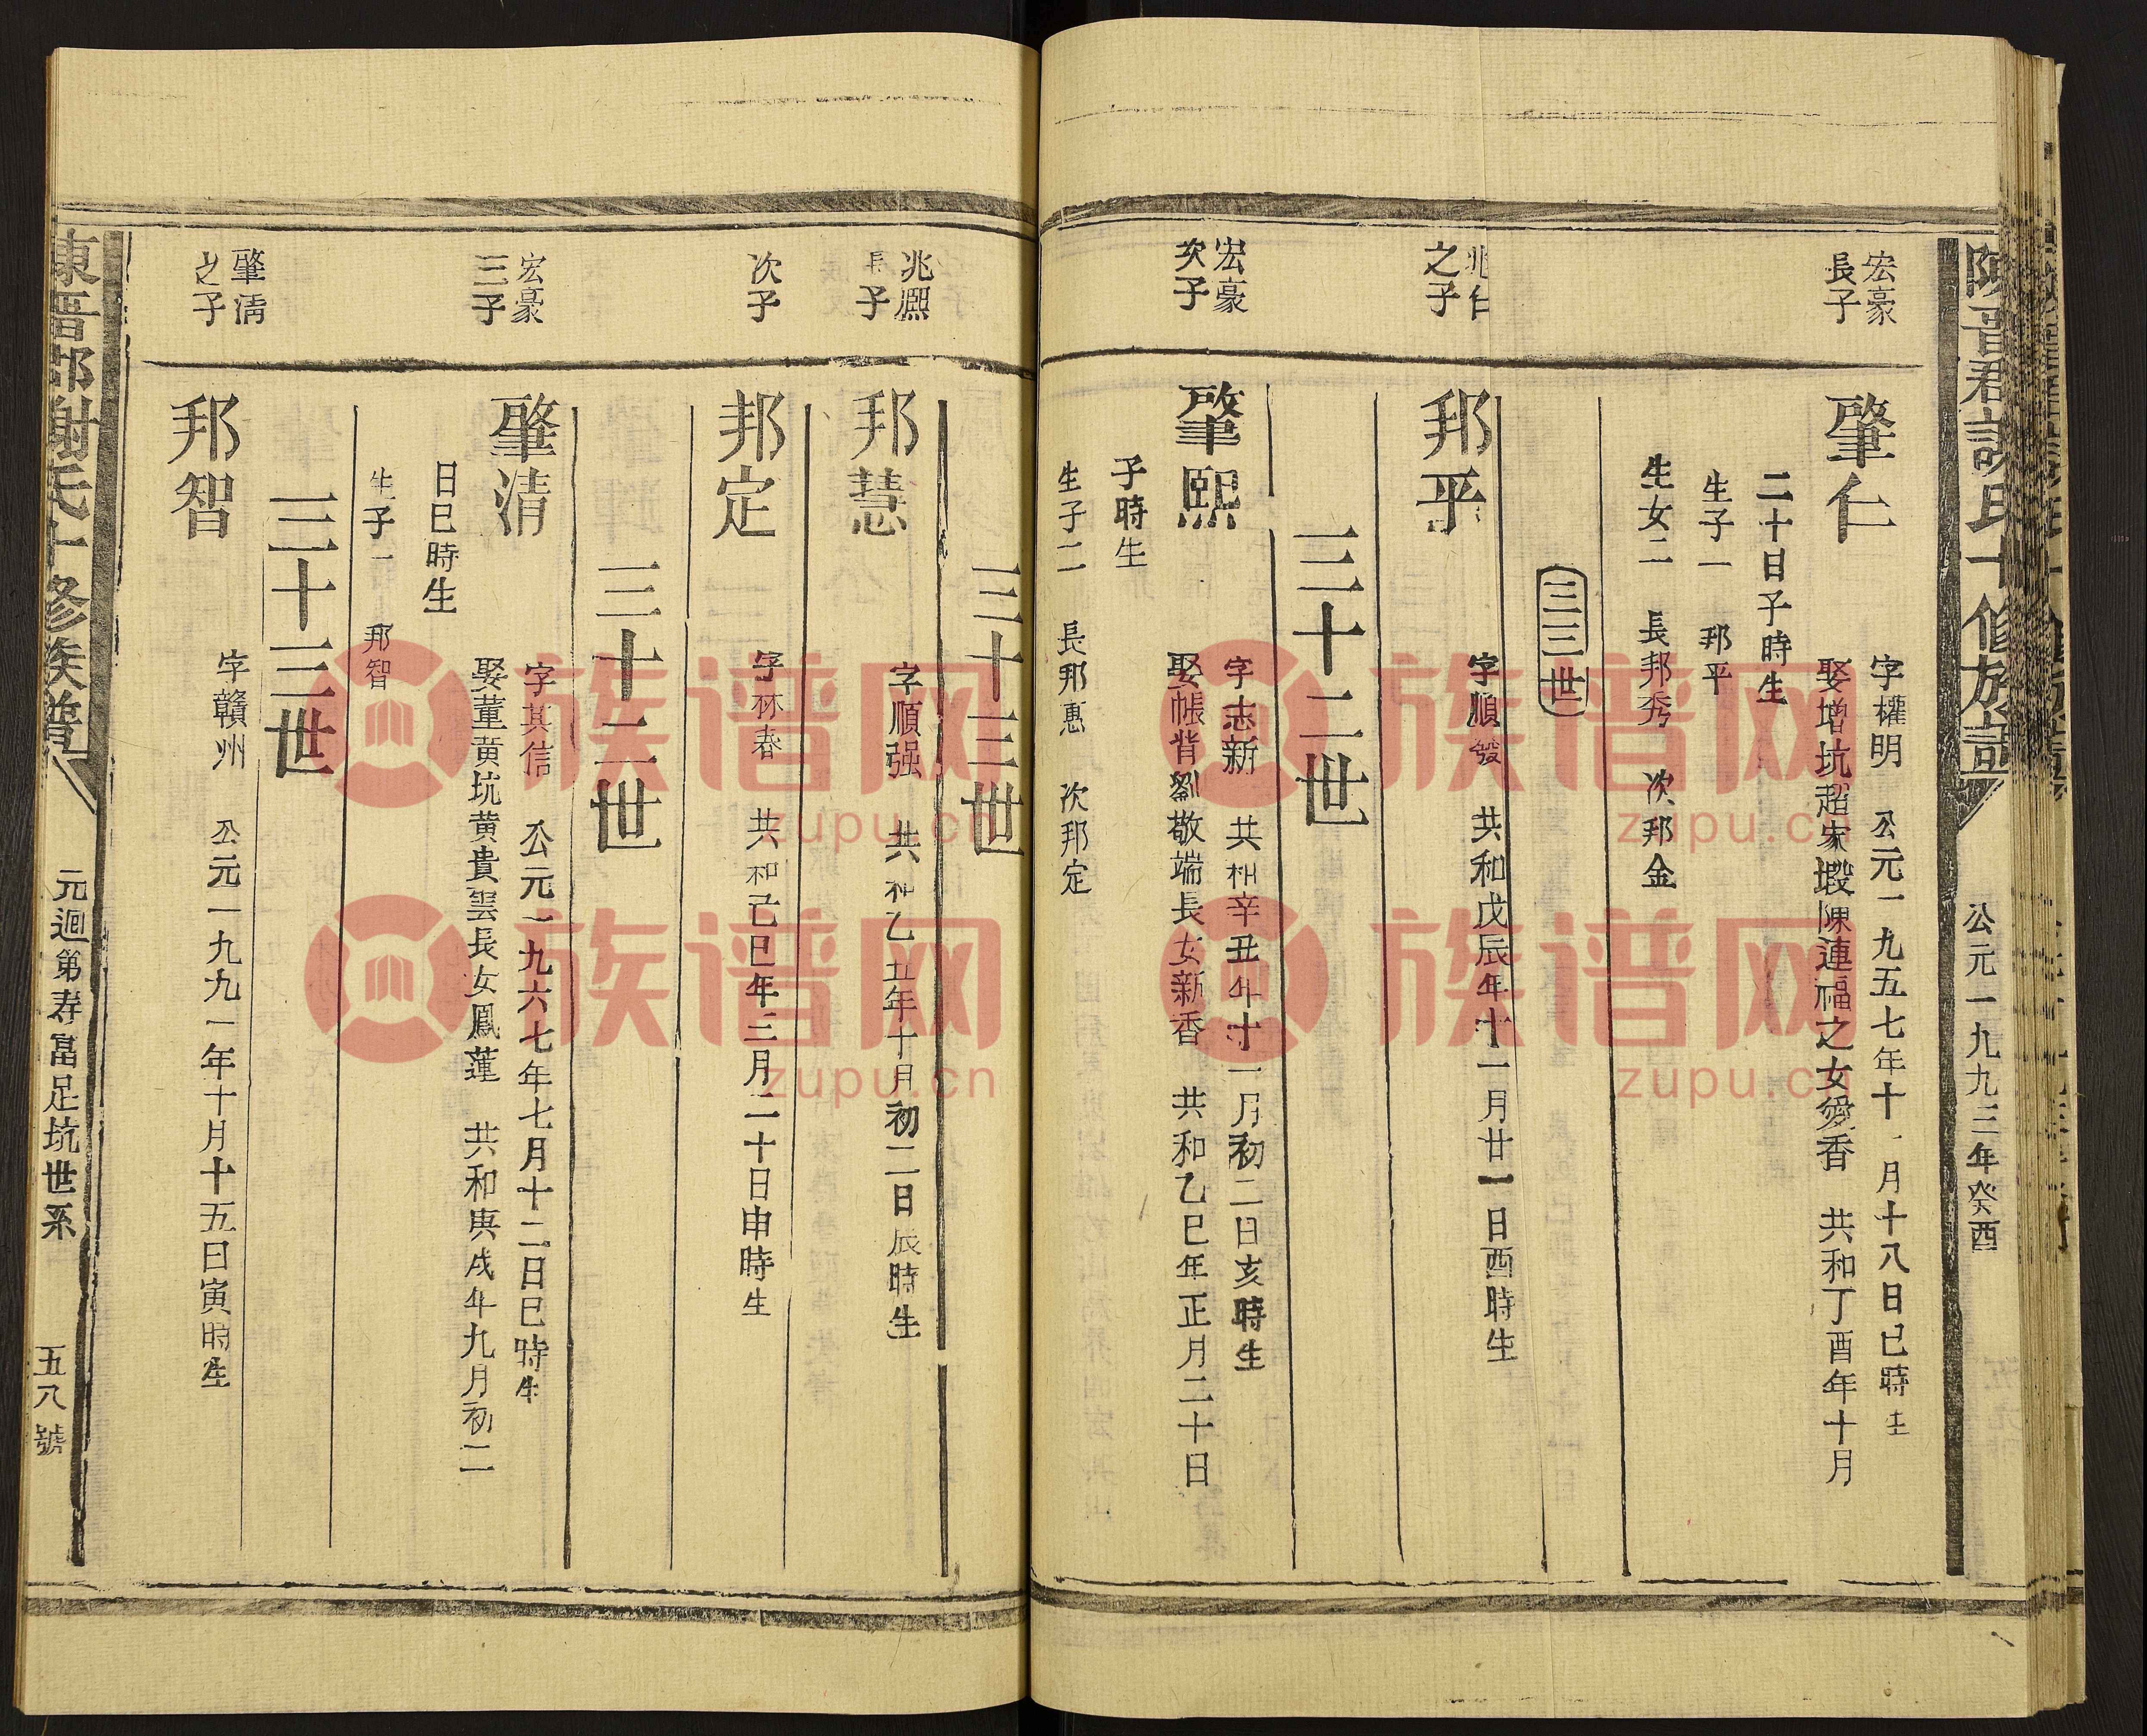 公元一九九三年癸酉
宏豪
長子
肇仁
字權明 公元一九五七年十一月十八日巳時生
娶增坑超家塅陳連福之女愛香 共和丁酉年十月
二十日子時生
生子一 邦平
生女二 長邦秀 次邦金
三三世
兆仁
之子
邦平
字順發 共和戊辰年十一月廿一日酉時生
三十二世
宏豪
次子
肇熙
字志新 共和辛丑年十一月初二日亥時生
娶帳背劉敬端長女新香 共和乙巳年正月二十日
子時生
生子二 長邦惠 次邦定
三十三世
兆熙
長子
邦慧
字順强 共和乙丑年十月初二日辰時生
次子
邦定
字林春 共和己巳年三月二十日申時生
三十二世
宏豪
三子
肇清
字其信 公元一九六七年七月十二日巳時生
娶董黄坑黄貴雲長女鳳蓮 共和庚戌年九月初二
日巳時生
生子一 邦智
三十三世
肇清
之子
邦智
字贛州 公元一九九一年十月十五日寅時生
東晋郡謝氏十修族譜
元迴第寿富足坑世系
五八號
族谱网
zupu.cn
族谱网
zupu.cn
族谱网
zupu.cn
族谱网
zupu.cn